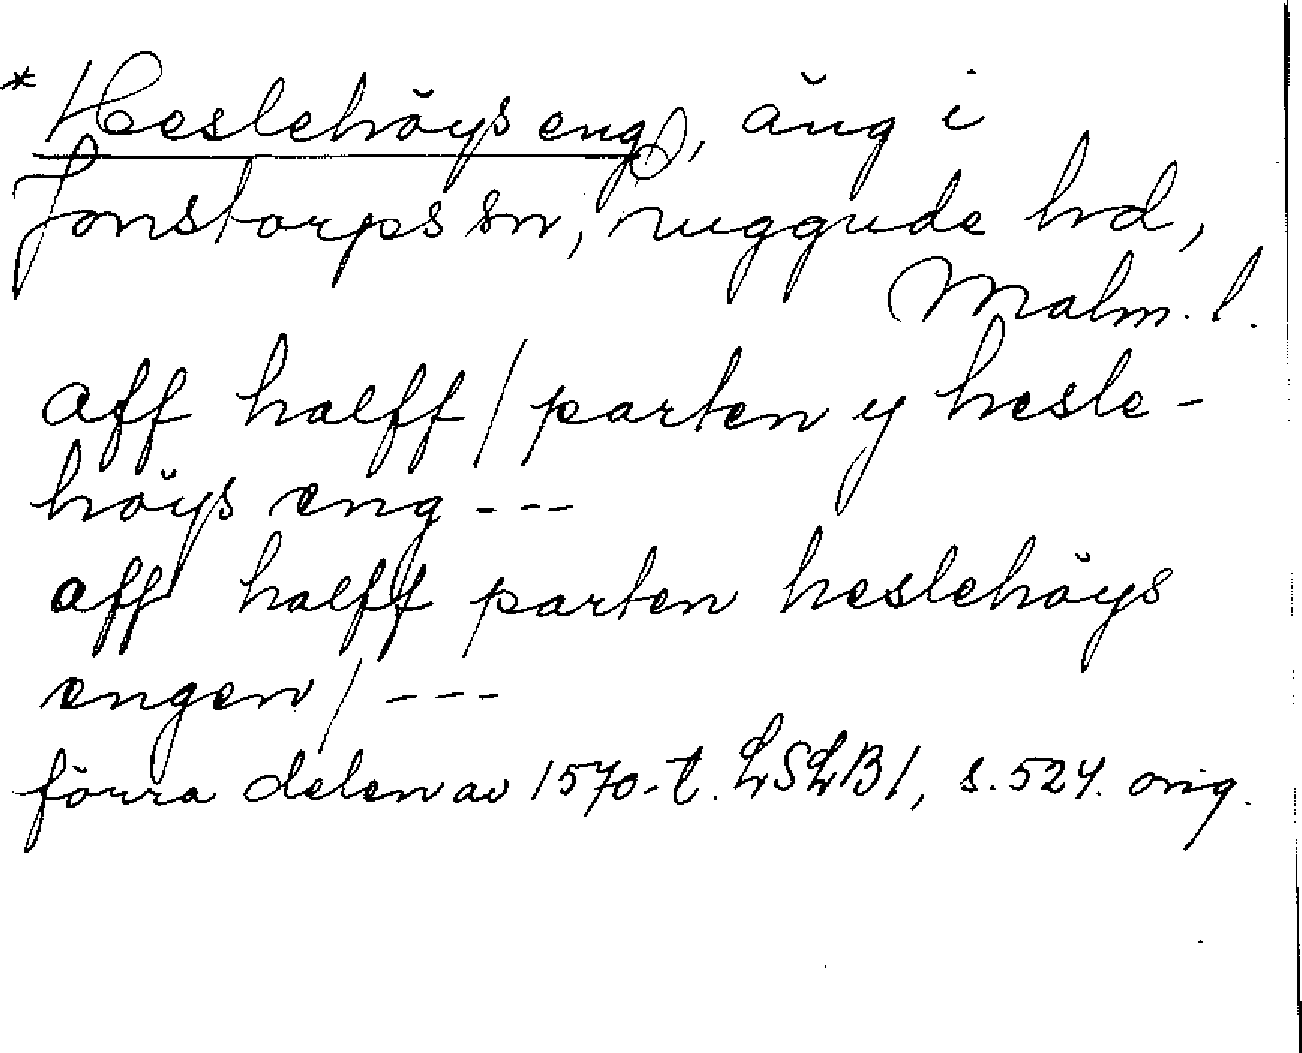 * Heslehöys eng, äng i
Jonstorps sn, Luggude hd,
Malm. l.
aff halff / parten y hesle-
höys eng ---
aff halff parten heslehöys
engen / ---
förra delen av 1570-t. LSLB 1, s. 524. orig.